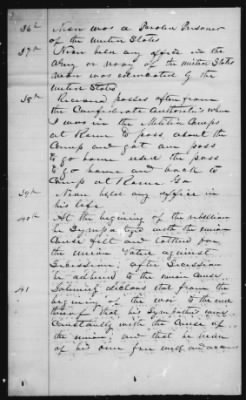 36th Never was a Parole Prisoner
of the United States
37th Never held any office in the
Army or navy of the United States
never was by the
United States
38th Received passes often from
the Confederate Authorities when
I was in the Militia Camps
at Rome to pass about the
Camp and got one pass
to go home used the pass
to go home and back to
Camp at Rome Ga
39th Never held any office in
his life
40th At the begining of the rebellion
he with the union
cause felt and talked for
the union Voted against
Secession; after Secession
he adhered to the union Cause
41 Solemnly declares that from the
begining of the war to the end
thereof that his Sympathies were
Constantly with the Cause of
the union; and that he never
of his own free will and accord